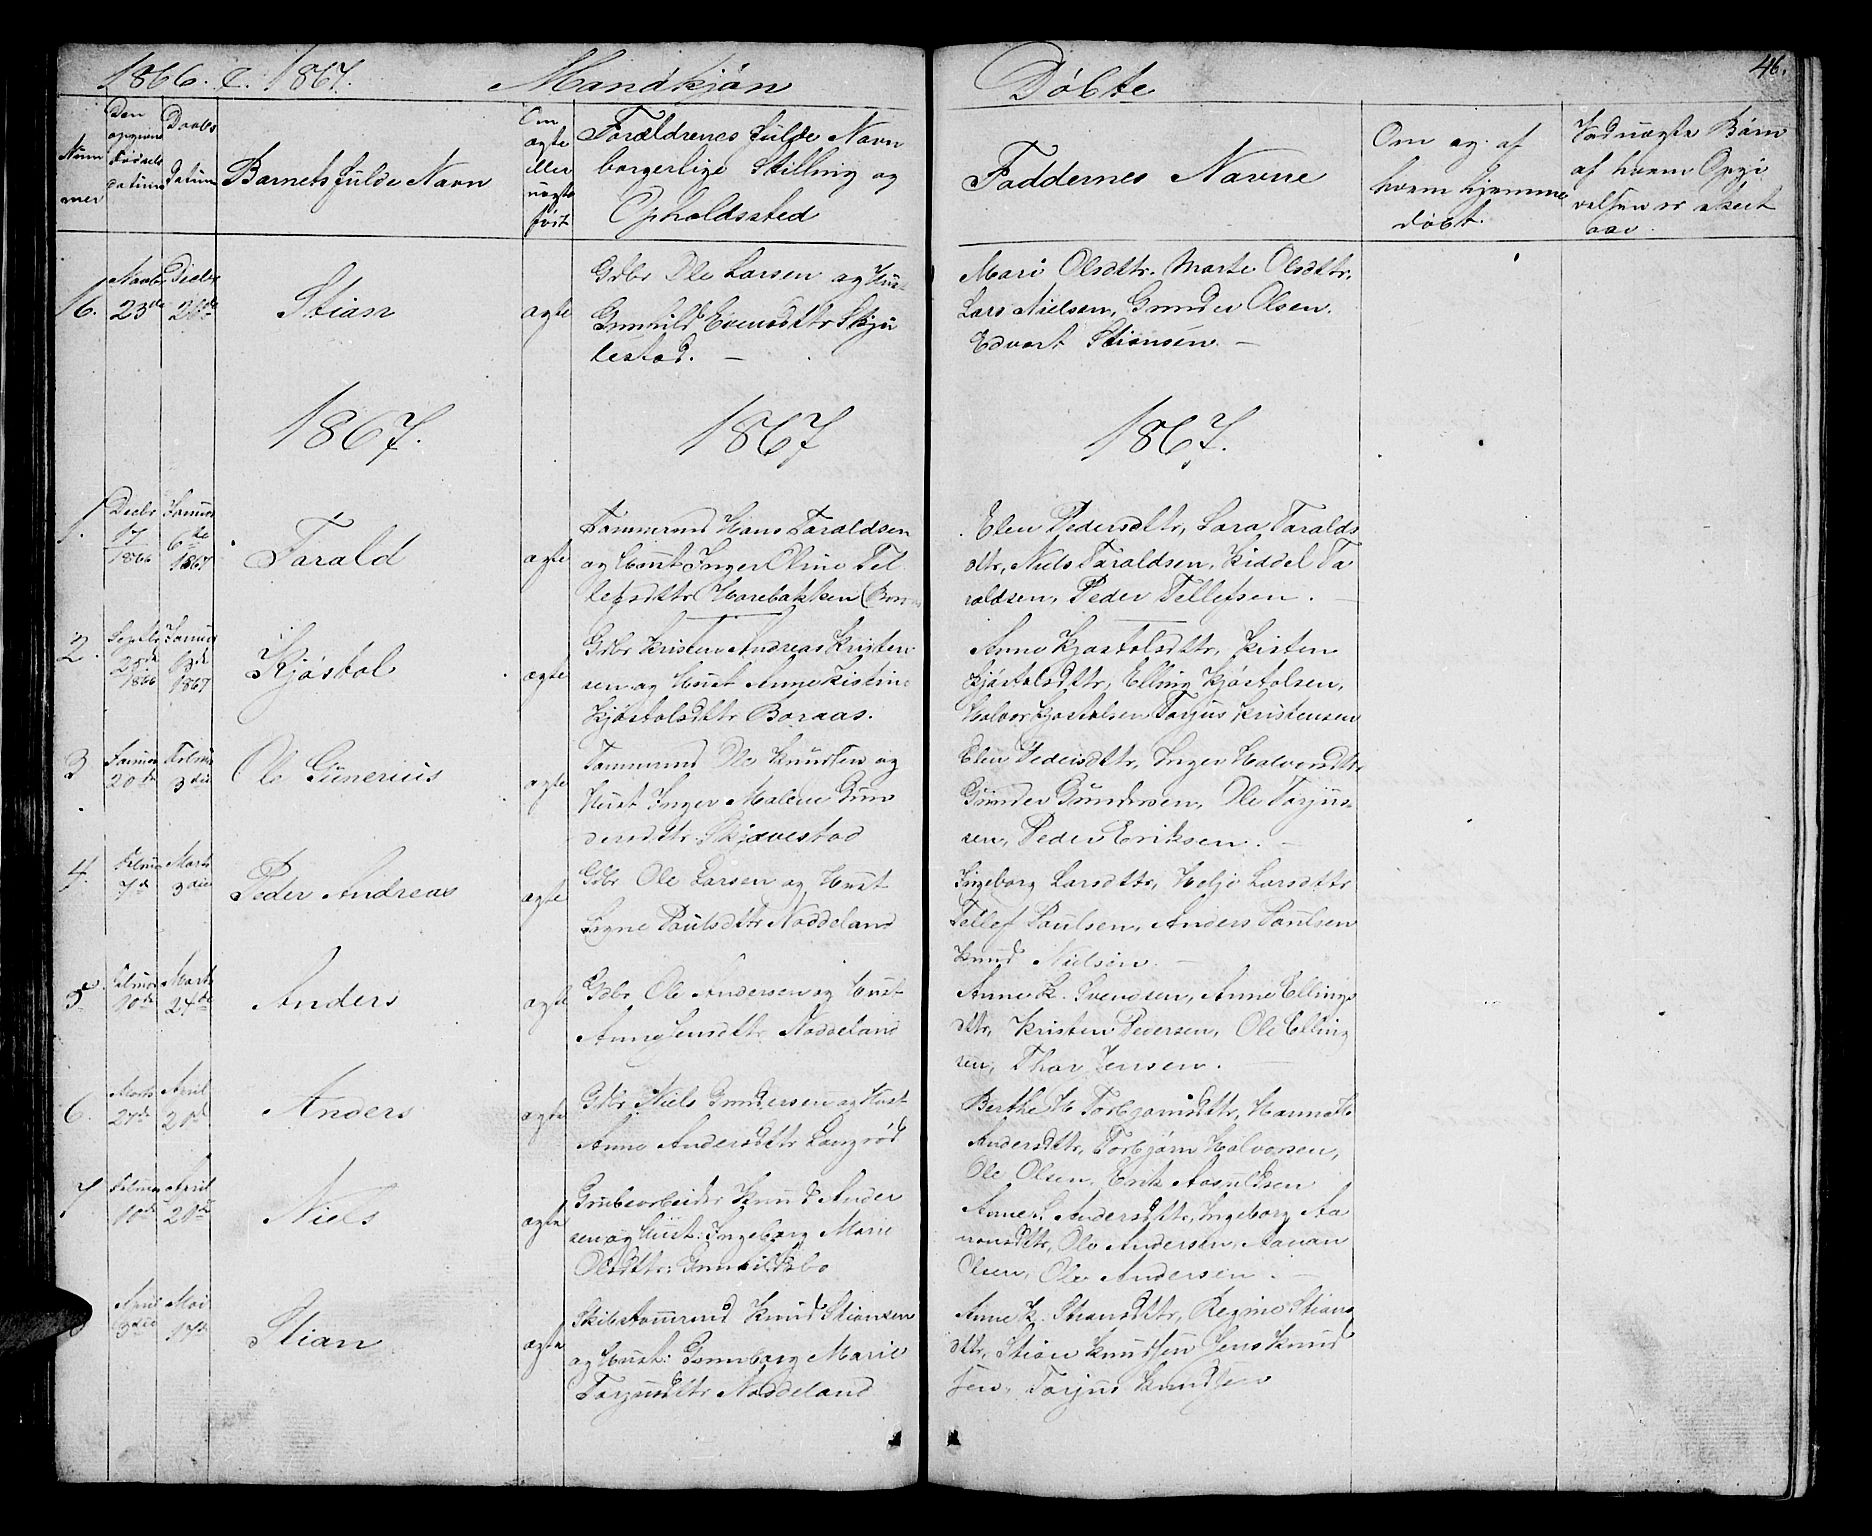 1866. & 1867. Mandkjøn
Døbte
46.
Num
mer
Den
opgivne
Fødsels
datum
Daabs
datum
Barnets fulde Navn
Om
ægte
eller
uægte
født
Forældrenes fulde Navn
borgerlige Stilling og
Opholdssted
Faddernes Navne
Om og af
hvem hjemme
døbt.
Ved uægte Børn
af hvem Opgi
velsen er skeet
16. Novbr 23de Decbr Stian ægte
Gdbr Ole Larsen og Hust
Gunhild Evensdttr Skju
lestad. —
Mari Olsdttr. Marte Olsdttr.
Lars Nielsen, Gunder Olsen.
Edvart Stiansen. —
1867. 1867 1867.
1. Decbr 17 1866 Januar 6te 1867 Tarald ægte
Tømmermd Hans Taraldsen
og Hust Inger Oline Tel
lefsdttr Harebakken
Elen Pedersdttr, Sara Taralds
dttr, Niels Taraldsen, Kiddel Ta
raldsen, Peder Tellefsen. —
2. Septbr 1866 Januar 1867 Kjøstol ægte
Gdbr Kristen Andreas Kristen
sen og Hust Anne Kistine
Kjøstolsdttr Boraas.
Anne Kjøstolsdttr, Kisten
Kjøstolsdttr, Elling Kjøstolsen,
Halvor Kjøstolsen Tarjus Kristensen
3 Januar 20de Februar 3die Ole Gunerius ægte
Tømmermd Ole Knudsen og
Hust Inger Malene Gun
dersdttr Skjævestad
Elen Pedersdttr, Inger Halvorsdttr
Gunder Gundersen, Ole Tarjus
sen, Peder Eriksen. —
4. Februar 7de Marts 3die Peder Andreas ægte
Gdbr Ole Larsen og Hust
Signe Poulsdttr Noddeland
Ingeborg Larsdttr, Helje Larsdttr
Tellef Poulsen, Anders Poulsen
Knud Nielsen. —
5. Februar 10de Marts 24de Anders ægte
Gdbr Ole Andersen og Hust
Anne Jensdttr Noddeland
Anne K. Svendsen, Anne Ellings
dttr, Kristen Pedersen, Ole Elling
sen, Thor Jensen. —
6. Marts April 21de Anders ægte
Gdbr Niels Gundersen og Hust
Anne Andersdttr Langrød
Berthe H Torbjørnsdttr, Hanna H
Andersdttr, Torbjørn Halvorsen,
Ole Olsen, Erik Aasuldsen
7 Februar April 21de Niels ægte
Grubearbeider Knud Ander
sen og Hust: Ingeborg Marie
Olsdttr: Gunhildsbo
Anne S. Andersdttr, Ingeborg Aa
nonsdttr, Ole Andersen, Aanan
Olsen, Ole Andersen. —
April 3die Mai Stian ægte
Skibstømmermd Knud Stiansen
og Hust: Gunborg Marie
Tarjusdttr Noddeland
Anne K. Stiansdttr, Regine Stians
dttr, Stian Knudsen Jens Knud
sen, Tarjus Knudsen